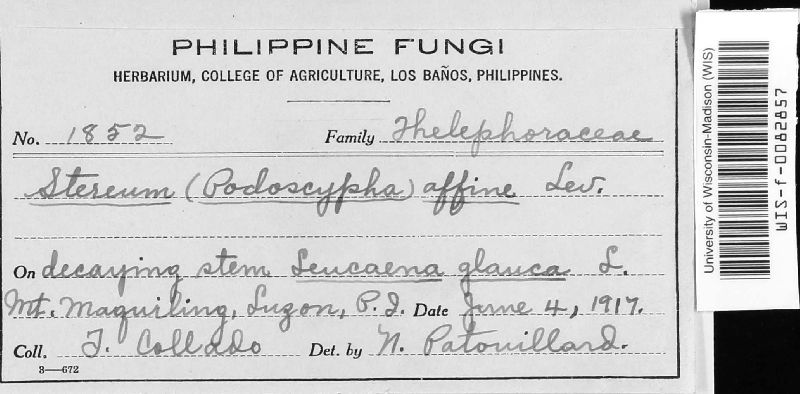 PHILIPPINE FUNGI
HERBARIUM, COLLEGE OF AGRICULTURE, LOS BAÑOS, PHILIPPINES.
No. 1852 Family Thelephoraceae
Stereum (Podoscypha) affine Lev.
On decaying stem Leucaena glauca L.
Mt. Maquiling, Luzon, P.I. Date June 4, 1917.
Coll. T. Collado Det. by N. Patouillard.
3—672
University of Wisconsin-Madison (WIS)
WIS-f-0082857